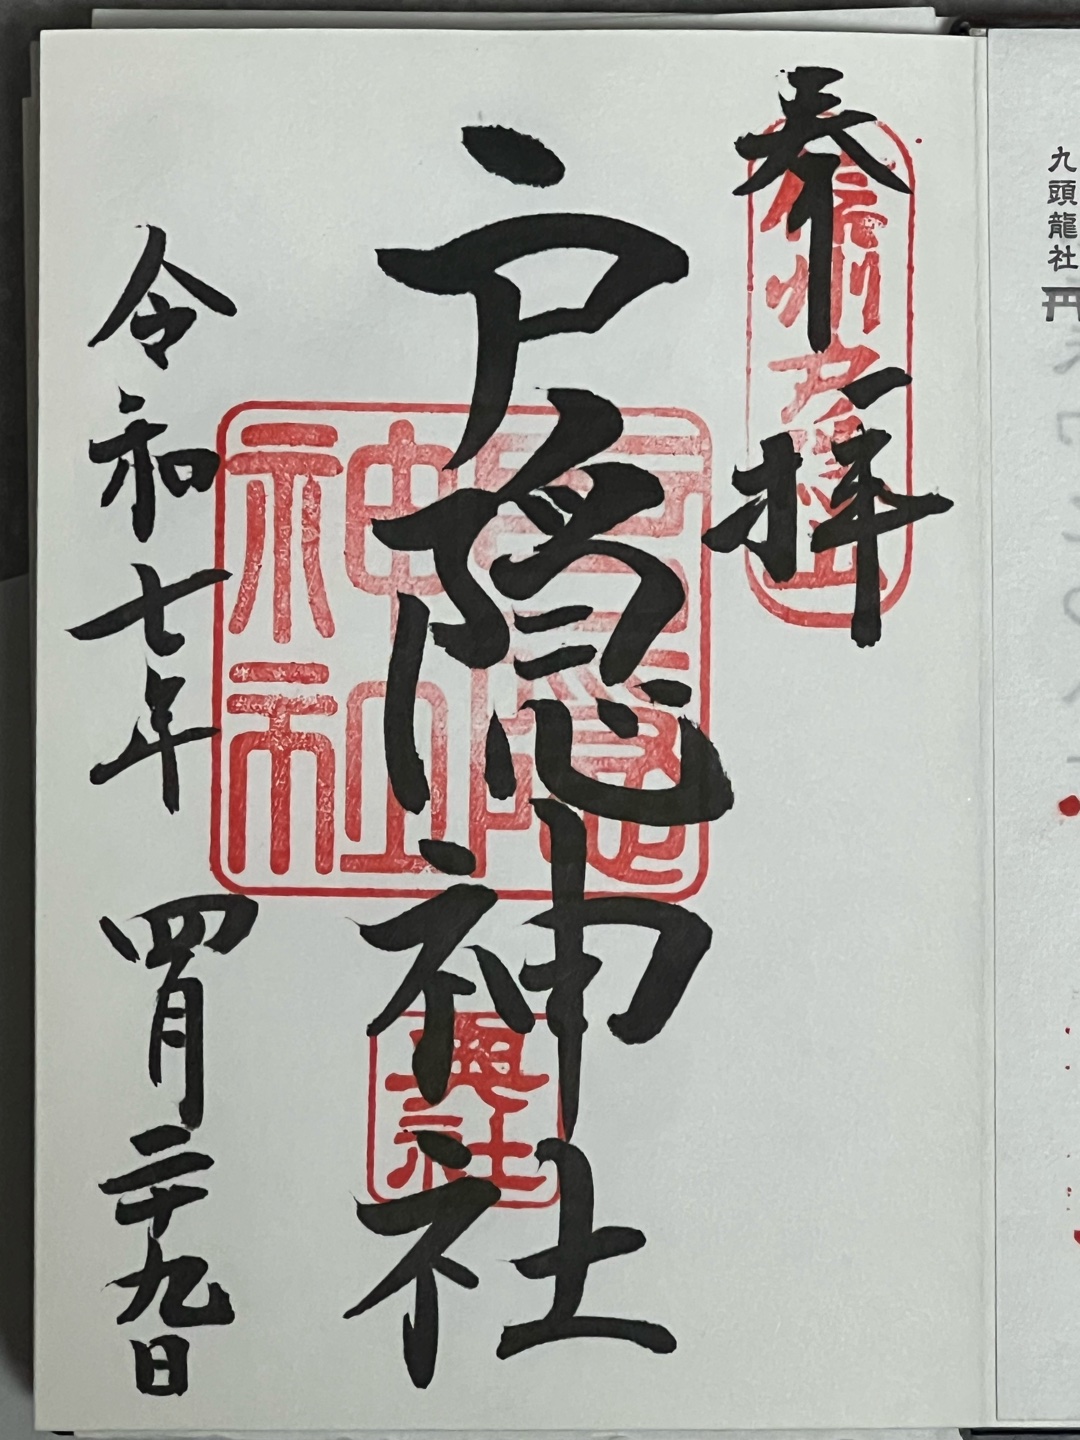 九頭龍社
奉拝
信州戸隠山
戸隠神社
戸隠神社
奥社
令和七年四月二十九日